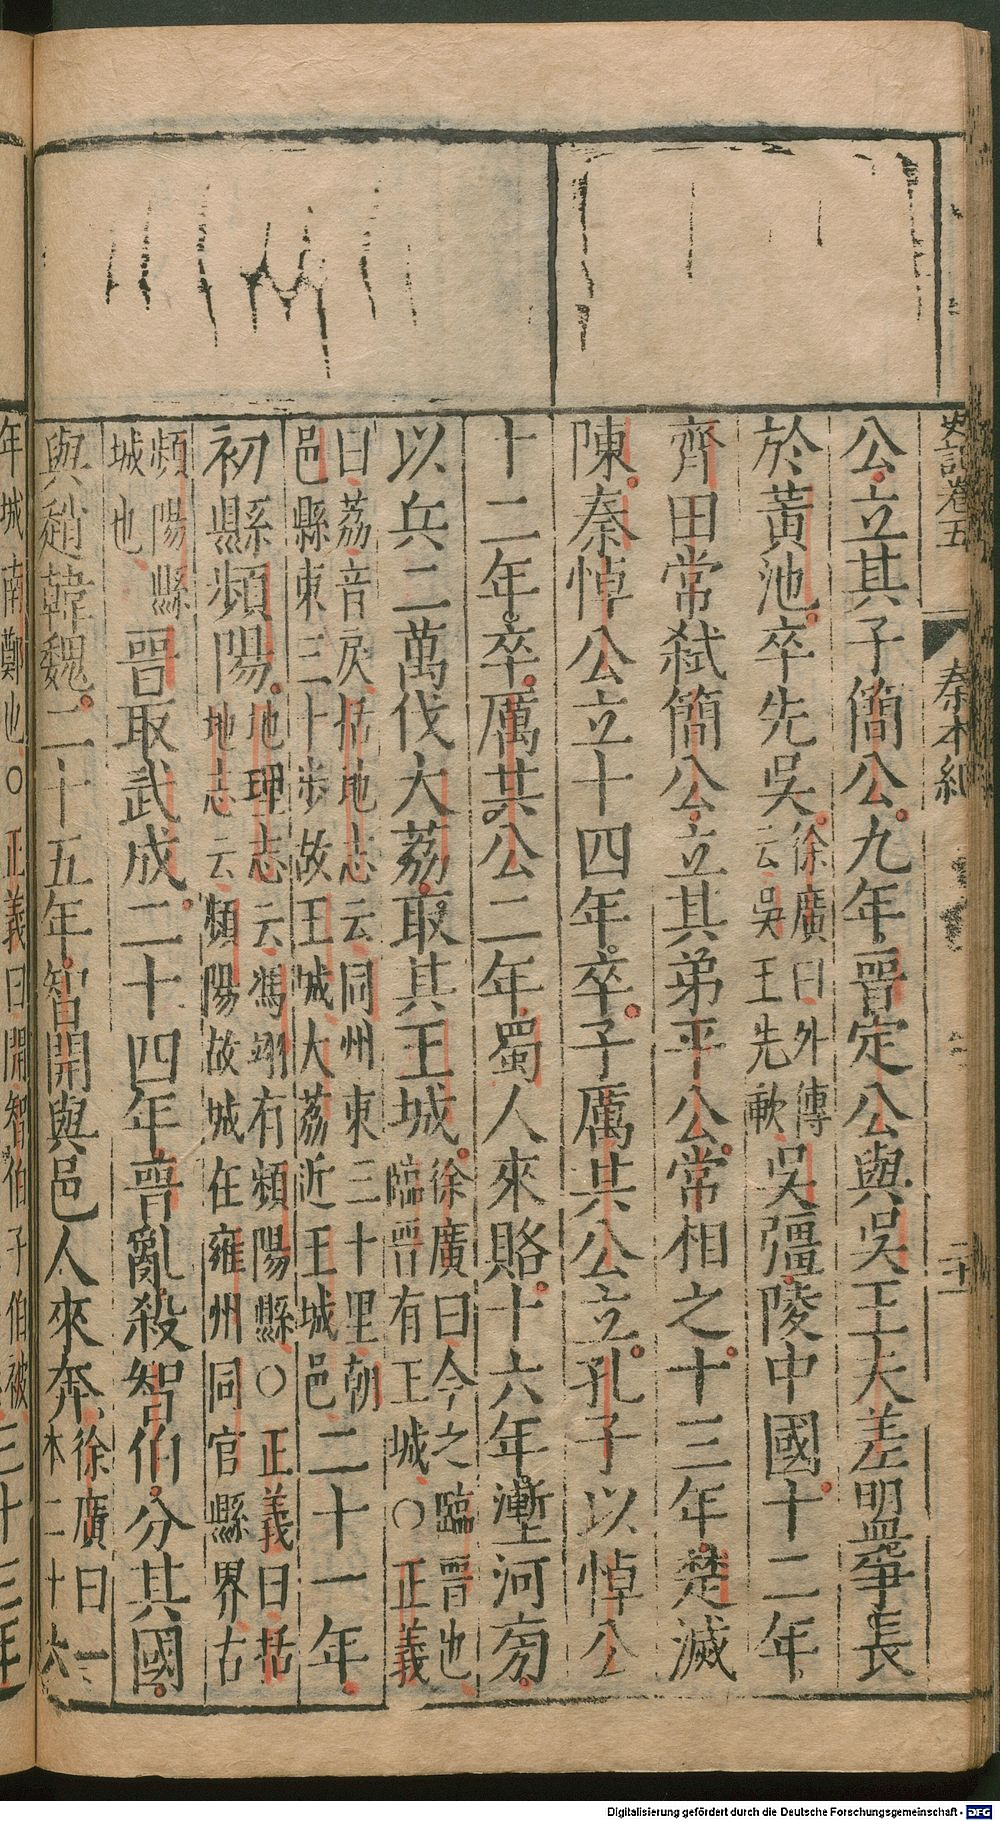 史記卷五 秦本紀 二十
公立其子簡公九年晉定公與吳王夫差盟爭長
於黃池卒先吳徐廣曰外傳
云吳王先歃吳彊陵中國十二年
齊田常弑簡公立其弟平公常相之十三年楚滅
陳秦悼公立十四年卒子厲共公立孔子以悼公
十二年卒厲共公二年蜀人來賂十六年壍河旁
以兵二萬伐大荔取其王城徐廣曰今之臨晉也
臨晉有王城○正義
曰荔音戾括地志云同州東三十里朝
邑縣東三十步故王城大荔近王城邑二十一年
初縣頻陽地理志云馮翊有頻陽縣○正義曰括
地志云頻陽故城在雍州同官縣界古
頻陽縣
城也晉取武成二十四年晉亂殺智伯分其國
與趙韓魏二十五年智開與邑人來奔徐廣曰一
本二十六
年城南鄭也○正義曰開智伯子伯被
Digitalisierung gefördert durch die Deutsche Forschungsgemeinschaft - DFG